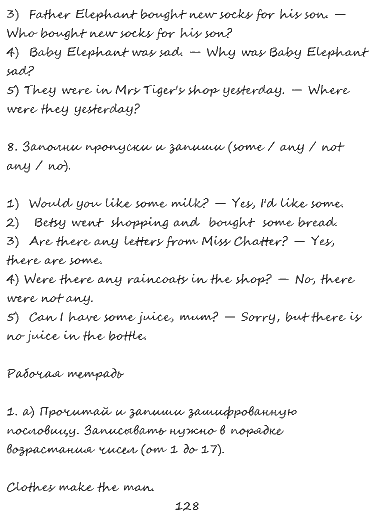 3) Father Elephant bought new socks for his son. —
Who bought new socks for his son?
4) Baby Elephant was sad. — Why was Baby Elephant
sad?
5) They were in Mrs Tiger's shop yesterday. — Where
were they yesterday?
8. Заполни пропуски и запиши (some / any / not
any / no).
1) Would you like some milk? — Yes, I'd like some.
2) Betsy went shopping and bought some bread.
3) Are there any letters from Miss Chatter? — Yes,
there are some.
4) Were there any raincoats in the shop? — No, there
were not any.
5) Can I have some juice, mum? — Sorry, but there is
no juice in the bottle.
Рабочая тетрадь
1. а) Прочитай и запиши зашифрованную
пословицу. Записывать нужно в порядке
возрастания чисел (от 1 до 17).
Clothes make the man.
128